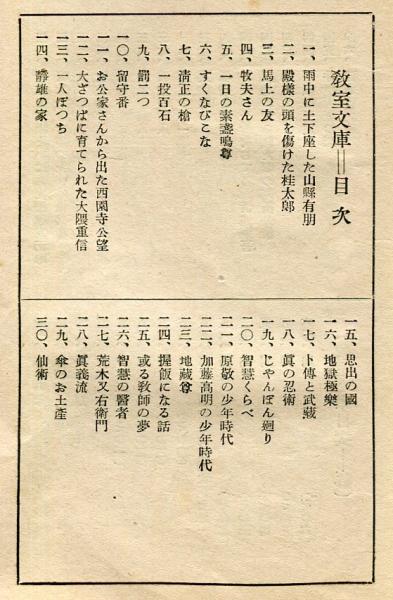 教室文庫＝目次
一、雨中に土下座した山縣有朋
二、殿樣の頭を傷けた桂太郎
三、馬上の友
四、牧夫さん
五、一日の素盞嗚尊
六、すくなびこな
七、淸正の槍
八、一投百石
九、罰二つ
一〇、留守番
一一、お公家さんから出た西園寺公望
一二、大ざつぱに育てられた大隈重信
一三、一人ぼつち
一四、靜雄の家
一五、思出の國
一六、地獄極樂
一七、卜傳と武藏
一八、眞の忍術
一九、じやんぽん廻り
二〇、智慧くらべ
二一、原敬の少年時代
二二、加藤高明の少年時代
二三、地藏尊
二四、握飯になる話
二五、或る敎師の夢
二六、智慧の醫者
二七、荒木又右衞門
二八、眞義流
二九、傘のお土產
三〇、仙術